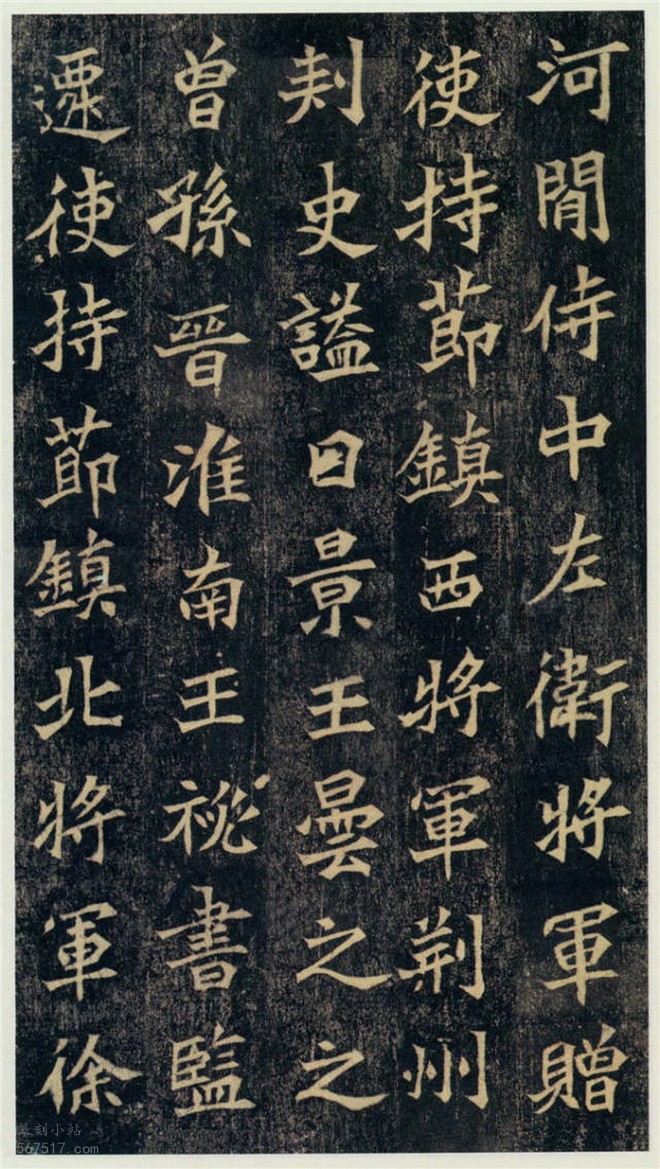 河間侍中左衛將軍贈
使持節鎮西將軍荊州
刾史謚曰景王曇之之
曾孫晉淮南王祕書監
遷使持節鎮北將軍徐
篆刻小站
567517.com